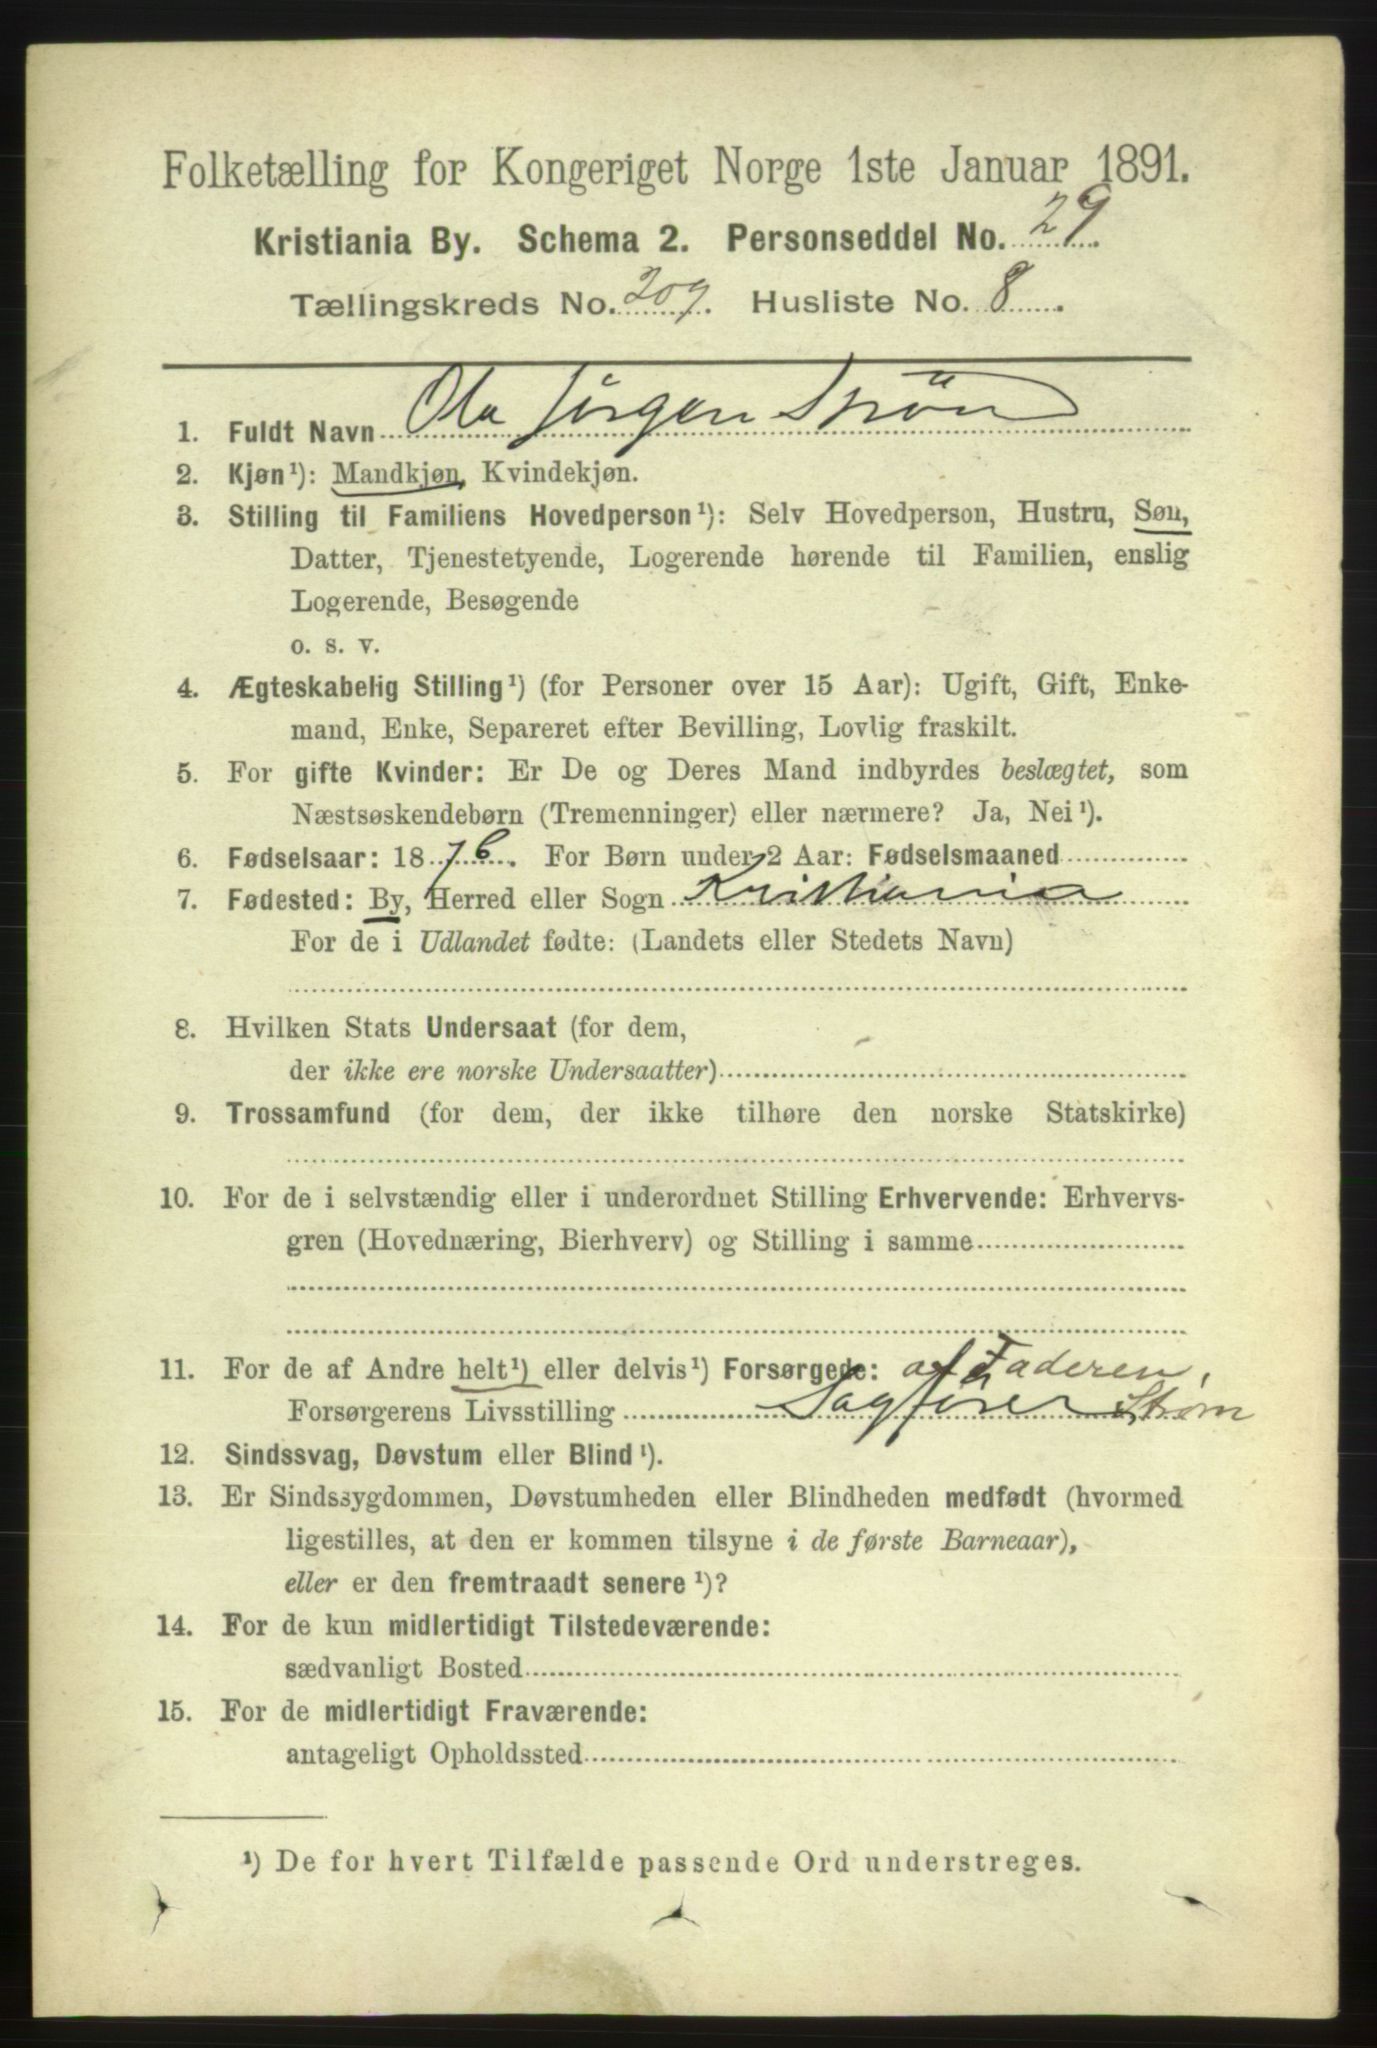 Folketælling for Kongeriget Norge 1ste Januar 1891.
Kristiania By. Schema 2. Personseddel No. 29.
Tællingskreds No. 209. Husliste No. 8.
1. Fuldt Navn Ola Jørgen Strøm
2. Kjøn¹): Mandkjøn, Kvindekjøn.
3. Stilling til Familiens Hovedperson¹): Selv Hovedperson, Hustru, Søn,
Datter, Tjenestetyende, Logerende hørende til Familien, enslig
Logerende, Besøgende
o. s. v.
4. Ægteskabelig Stilling¹) (for Personer over 15 Aar): Ugift, Gift, Enke-
mand, Enke, Separeret efter Bevilling, Lovlig fraskilt.
5. For gifte Kvinder: Er De og Deres Mand indbyrdes beslægtet, som
Næstsøskendebørn (Tremenninger) eller nærmere? Ja, Nei¹).
6. Fødselsaar: 1876. For Børn under 2 Aar: Fødselsmaaned
7. Fødested: By, Herred eller Sogn Kristiania
For de i Udlandet fødte: (Landets eller Stedets Navn)
8. Hvilken Stats Undersaat (for dem,
der ikke ere norske Undersaatter)
9. Trossamfund (for dem, der ikke tilhøre den norske Statskirke)
10. For de i selvstændig eller i underordnet Stilling Erhvervende: Erhvervs-
gren (Hovednæring, Bierhverv) og Stilling i samme
11. For de af Andre helt¹) eller delvis¹) Forsørgede: af Faderen,
Forsørgerens Livsstilling Sagfører Strøm
12. Sindssvag, Døvstum eller Blind¹).
13. Er Sindssygdommen, Døvstumheden eller Blindheden medfødt (hvormed
ligestilles, at den er kommen tilsyne i de første Barneaar),
eller er den fremtraadt senere¹)?
14. For de kun midlertidigt Tilstedeværende:
sædvanligt Bosted
15. For de midlertidigt Fraværende:
antageligt Opholdssted
¹) De for hvert Tilfælde passende Ord understreges.